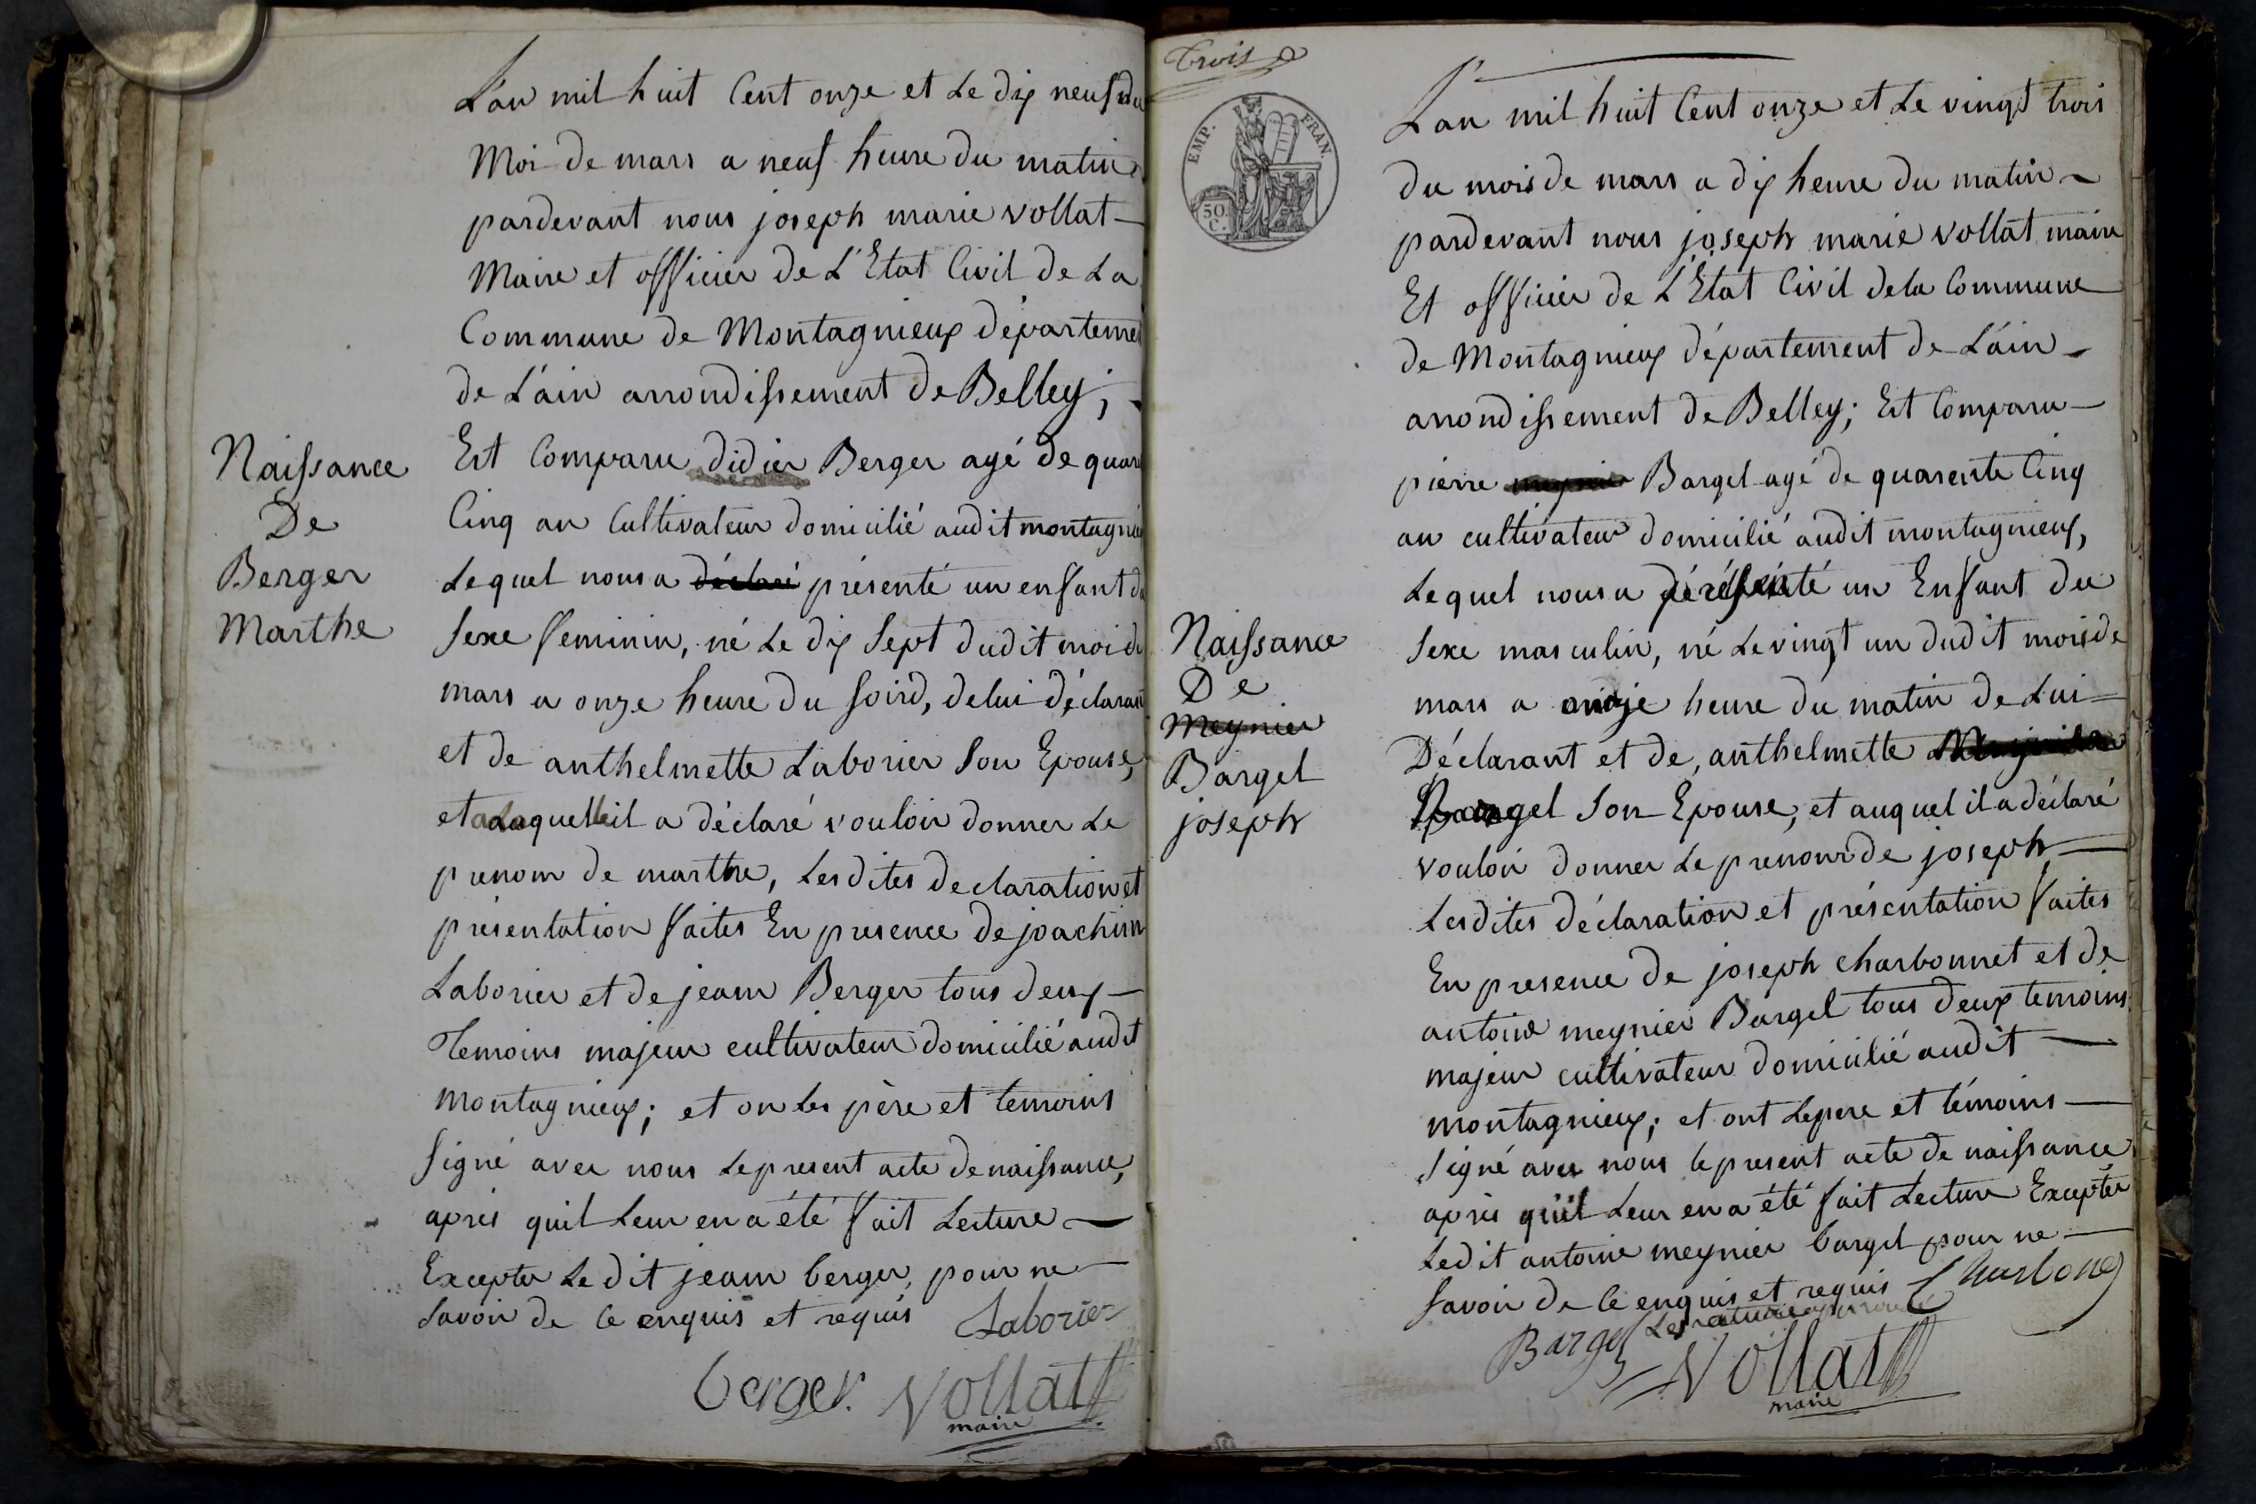 L'an mil huit Cent onze et Le dix neuf du
Moi de mars a neuf heure du matin
pardevant nous joseph marie vollat
Maire et officier de L'Etat Civil de La
Commune de Montagnieux départemen
de L'ain arrondissement de Belley;
Est Comparu didier Berger agé de quar
Cinq an Cultivateur domicilié audit montagnieu
Lequel nous a déclaré présenté un enfant d
Sexe feminin, né Le dix Sept dudit moi d
mars a onze heure du soird, de lui déclarant
et de anthelmette Laborier Son Epouse,
et a Laquelle il a déclaré vouloir donner Le
prenom de marthe, Lesdites declaration et
présentation faites En presence de joachim
Laborier et de jeam Berger tous deux
Temoins majeur cultivateur domicilié audit
montagnieux; et on Les père et temoins
signé avec nous Le present acte de naissance,
après quil Leur en a été fait Lecture
Excepter Le dit jeam berger pour ne
Savoir de ce enquis et requis Laborier
berger. Vollat
maire
Naissance
De
Berger
Marthe
Trois
EMP. FRAN.
50.
C.
L'an mil huit Cent onze et Le vingt trois
du mois de mars a dix heure du matin
pardevant nous joseph marie vollat maire
Et officier de L'Etat Civil de la Commune
de Montagnieux département de L'ain
arrondissement de Belley; Est Comparu
pierre meynier Bargel agé de quarente Cinq
an cultivateur domicilié audit montagnieux,
Lequel nous a présenté un Enfant du
Sexe masculin, né Le vingt un dudit mois de
mars a onze heure du matin de Lui
Déclarant et de, anthelmette
Bargel Son Epouse, et auquel il a déclaré
vouloir donner Le prenom de joseph
Lesdites déclaration et présentation faites
En presence de joseph charbonnet et de
antoine meynier Bargel tous deux temoins
majeur cultivateur domicilié audit
montagnieux; et ont Le pere et témoins
signé avec nous le present acte de naissance
après quil Leur en a été fait Lecture Excepter
Ledit antoine meynier bargel pour ne
Savoir de Ce enquis et requis Charbone
Bargel Les
Vollat
maire
Naissance
De
Meynier
Bargel
joseph